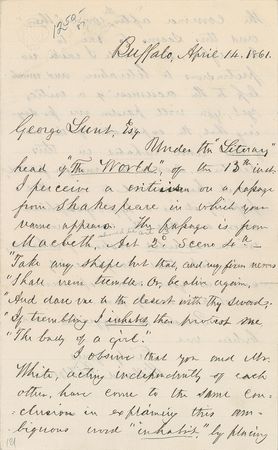 1250-
Buffalo, April 14. 1861.
George Lunt, Esq
Under the "Literary"
head of "The World", of the 13th inst.
I perceive a criticism on a passage
from Shakespeare in which your
name appears. The passage is from
Macbeth, Act 2d. Scene 4th —
"Take any shape but that, and my firm nerves
"Shall never tremble. Or, be alive again,
"And dare me to the desert with thy sword;
"If trembling I inhabit, then protest me
"The baby of a girl."
I observe that you and Mr.
White, acting independently of each
other, have come to the same con-
clusion in explaining this am-
biguous word "inhabit," by placing
181